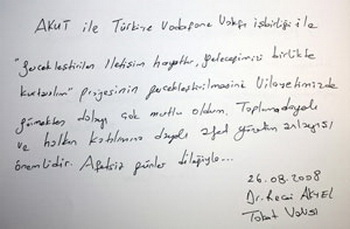 AKUT ile Türkiye Vodafone Vakfı işbirliği ile
"gerçekleştirilen İletişim hayattır, geleceğimizi birlikte
kurtaralım" projesinin gerçekleştirilmesini Vilayetimizde
görmekten dolayı çok mutlu oldum. Topluma dayalı
ve halkın katılımına dayalı afet yönetim anlayışı
önemlidir. Afetsiz günler dileğiyle...
26.08.2008
Dr. Recai AKYEL
Tokat Valisi